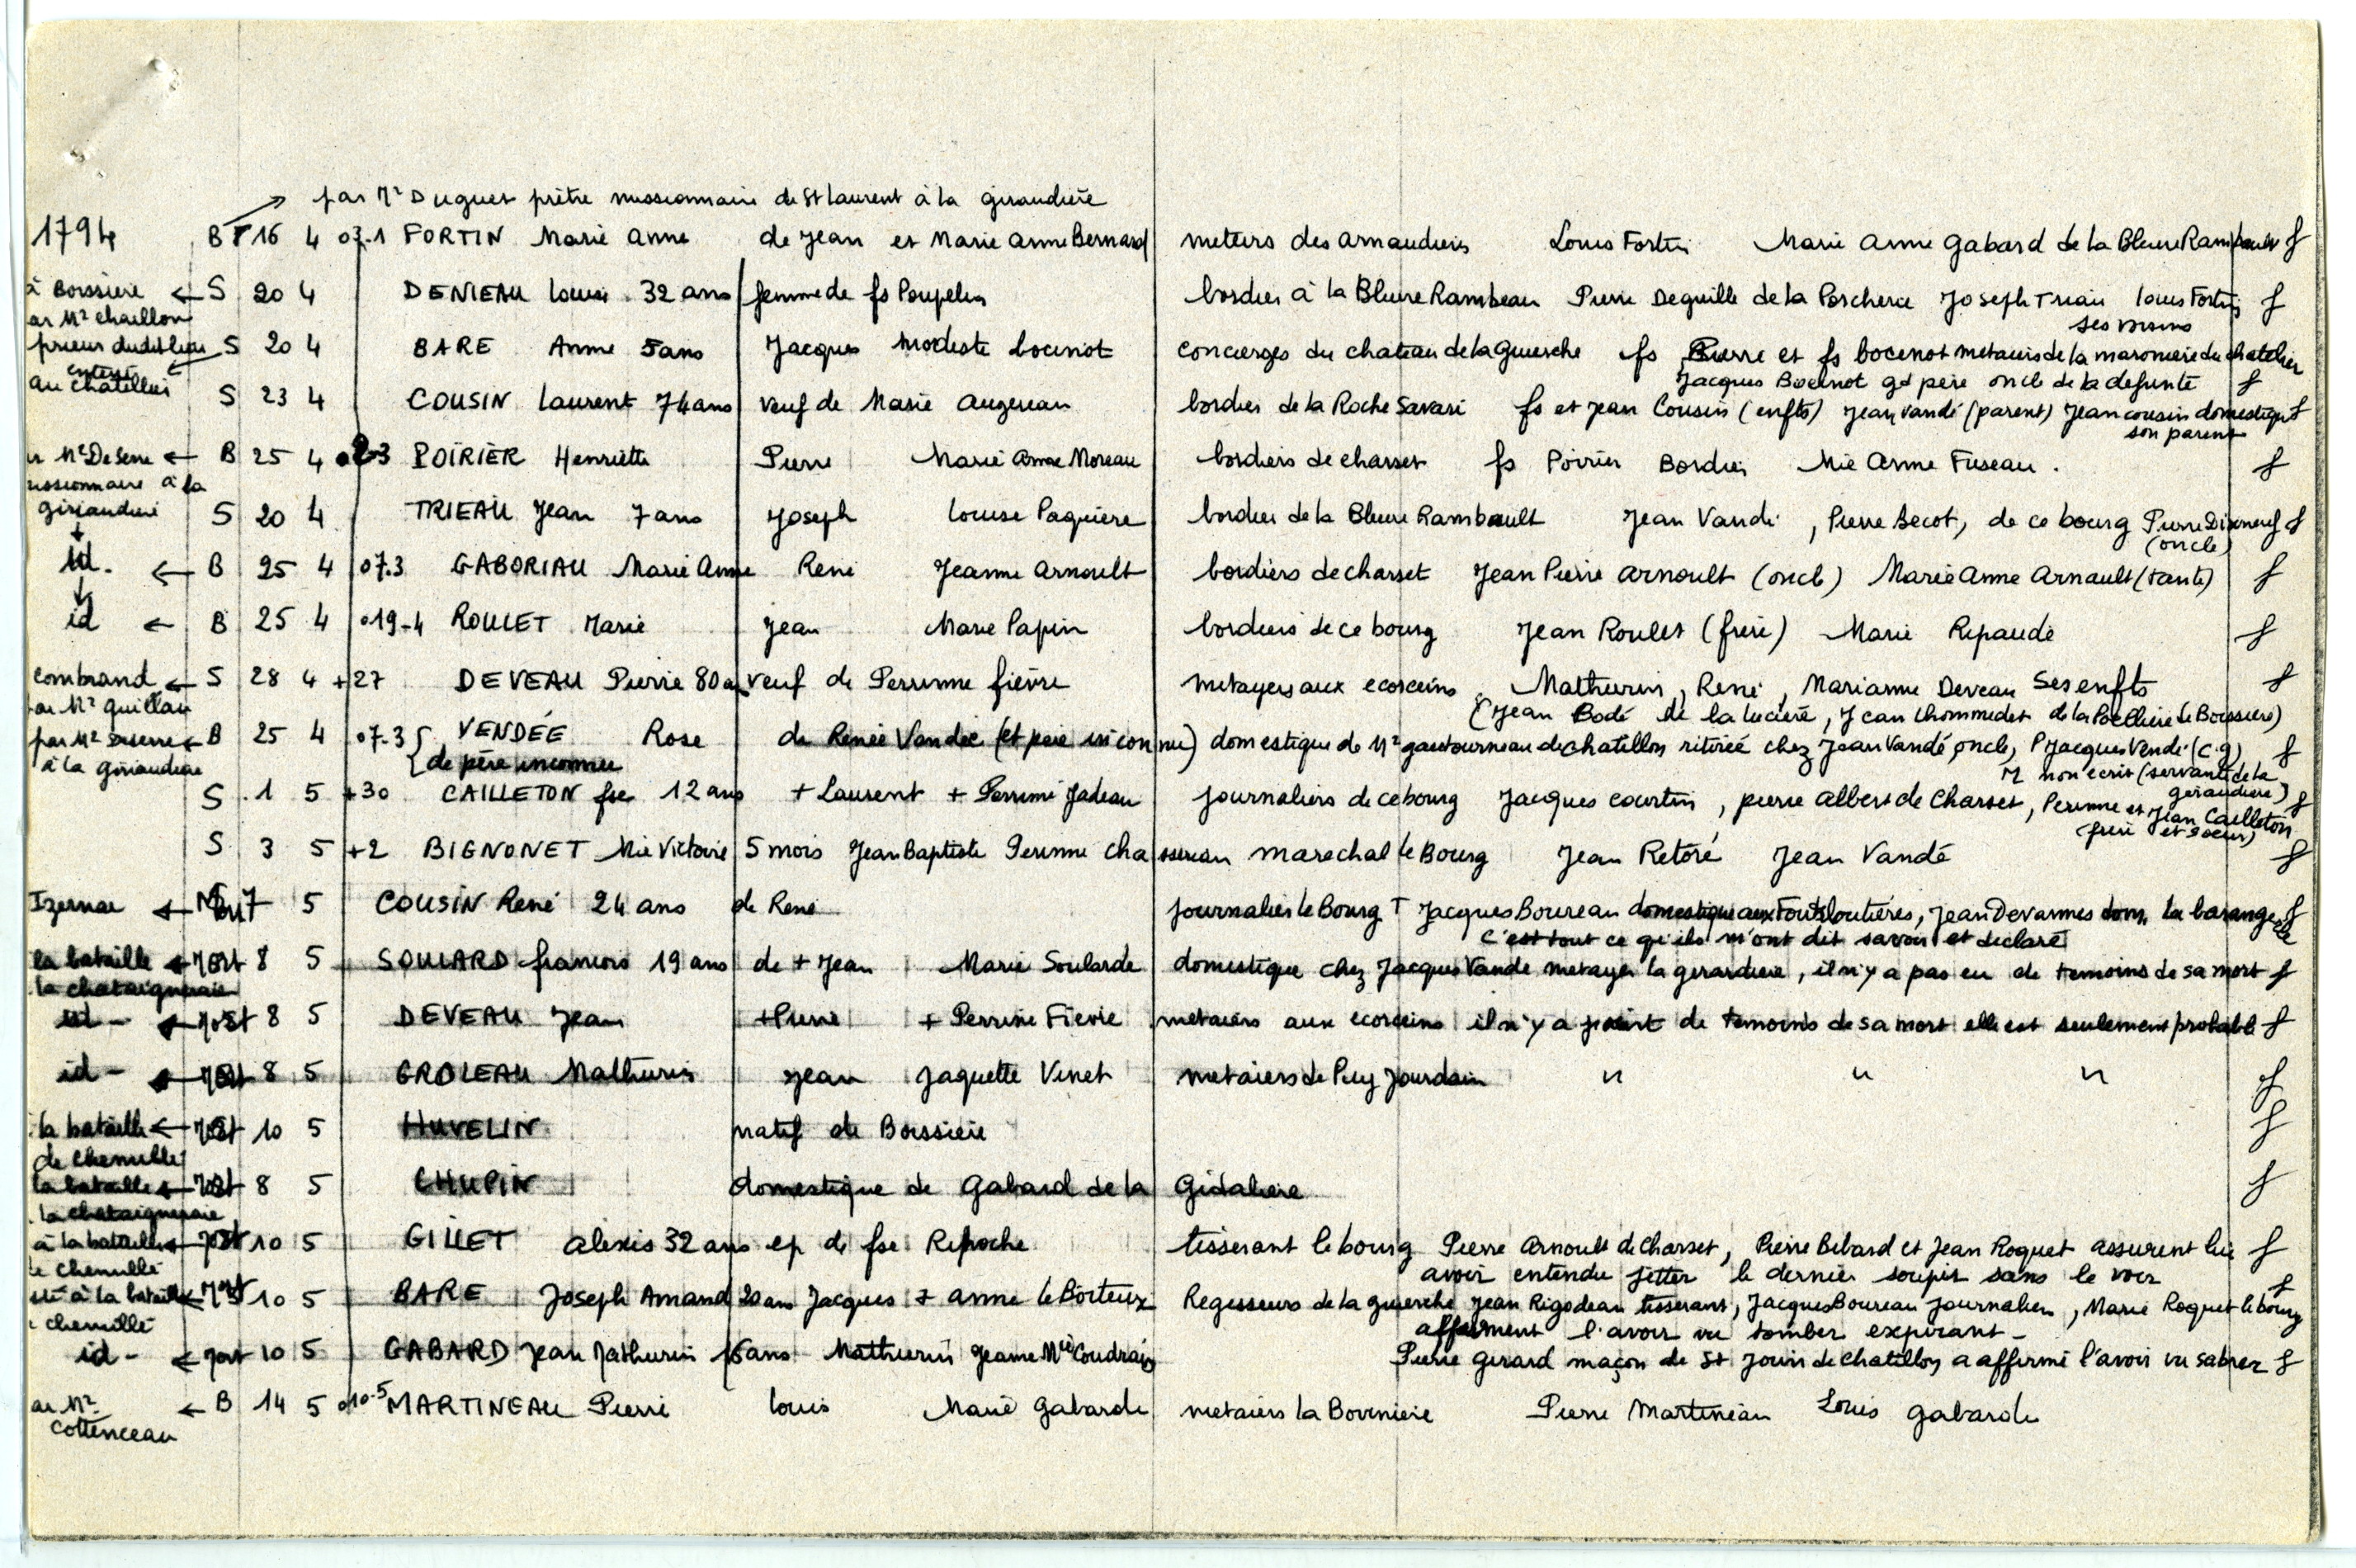 par Mr Duguet prêtre missionnaire de St Laurent à la giraudière
1794 B 16 4 o7.1 FORTIN Marie Anne de Jean et Marie Anne Bernard meteirs des arnaudieres Louis Fortin Marie Anne Gabard de la Bleure Rambault f
à Boissière ← S 20 4 DENIEAU Louise 32 ans femme de fs Poupelin bordier à la Bleure Rambeau Pierre Deguille de la Porcherie Joseph Triau Louis Fortin f
ar Mr chaillon ses voisins
prieur dudit lieu S 20 4 BARE Anne 5 ans Jacques Modeste bocenot concierges du chateau de la Guierche fs Pierre et fs bocenot metaiis de la maronniere du chatelier
enterré au chatellier Jacques Bocenot gd père oncle de la defunte f
S 23 4 COUSIN Laurent 74 ans veuf de Marie Augereau bordier de la Roche Savari fs et Jean Cousin (enfts) Jean Vandé (parent) Jean cousin domestique f
son parent
r Mr De Serre ← B 25 4 o 23 POIRIER Henriette Pierre Marie Anne Moreau bordiers de charset fs Poirier Bordier Mie Anne Fuseau. f
issionnaire à la
giraudiere S 20 4 TRIEAU Jean 7 ans Joseph Louise Paquière bordier de la Bleure Rambault Jean Vandé, Pierre Becot, de ce bourg Pierre Dixneuf f
(oncle)
id. ← B 25 4 o7.3 GABORIAU Marie Anne René Jeanne Arnoult bordiers de charset Jean Pierre Arnoult (oncle) Marie Anne Arnault (tante) f
id ← B 25 4 o19-4 ROULET Marie Jean Marie Papin bordiers de ce bourg Jean Roulet (frère) Marie Ripaude f
combrand ← S 28 4 +27 DEVEAU Pierre 80 a veuf de Perrinne fièvre metayers aux ecorceins Mathurin, René, Marianne Deveau Ses enfts f
ar Mr guillau (Jean Bodé de la lucière, Jean Chommedet de la Poethiere de Boissiere)
par Mr Deserre ← B 25 4 o7.3 { VENDÉE Rose de Renée Vandée (et père inconnu) domestique de Mr gautourneau de chatillon retirée chez Jean Vandé, oncle, P Jacques Vendé (c.g) f
à la giraudiere { de père inconnu M non ecrit (servante de la
giraudiere)
S 1 5 +30 CAILLETON fse 12 ans + Laurent + Perrine Jadeau journaliers de ce bourg Jacques courtin, pierre Albert de Charset, Perinne et Jean Cailleton f
(frère et soeur)
S 3 5 +2 BIGNONET Mie Victoire 5 mois Jean Baptiste Perinne chassereau marechal le Bourg Jean Retoré Jean Vandé f
Izernai ← Mort 7 5 COUSIN René 24 ans de René journalier le Bourg T Jacques Boureau domestique aux Foulloutières, Jean Devannes dom. la barangerie f
c'est tout ce qu'ils m'ont dit savoir et déclaré
la bataille ← Mort 8 5 SOULARD francois 19 ans de + Jean Marie Soularde domestique chez Jacques Vandé metayer la gerardiere, il n'y a pas eu de temoins de sa mort f
la chataigneraie
id - ← Mort 8 5 DEVEAU Jean + Pierre + Perrine Fievre metaiers aux ecorceins il n'y a point de temoins de sa mort elle est seulement probable f
id - ← Mort 8 5 GROLEAU Mathurin Jean Jaquette Vinet metaiers de Puy Jourdain " " " f
la bataille ← Mort 10 5 HUVELIN natif de Boissiere f
de Chemillé
la bataille ← Mort 8 5 CHUPIN domestique de Gabard de la Gidaliere f
la chataigneraie
à la bataille ← Mort 10 5 GILLET alexis 32 ans ep de fse Repoche tisserant le bourg Pierre Arnoult de Charset, Pierre Bibard et Jean Roquet assurent lui f
de chemillé avoir entendu jetter le dernier soupir sans le voir
à la bataille ← Mort 10 5 BARE Joseph Amand 20 ans Jacques + anne le Boiteux Regisseurs de la guierche Jean Rigodeau tisserant, Jacques Boureau journalier, Marie Roquet le bourg f
chemillé affirment l'avoir vu tomber expirant -
id - ← Mort 10 5 GABARD Jean Mathurin 16 ans Mathurin Jeanne Mie Coudrais Pierre Girard maçon de St Jouin de chatillon a affirmé l'avoir vu sabrer f
ar Mr ← B 14 5 o10.5 MARTINEAU Pierre Louis Marie Gabarde metaiers la Boveniere Pierre Martineau Louis Gabarde
Cottenceau